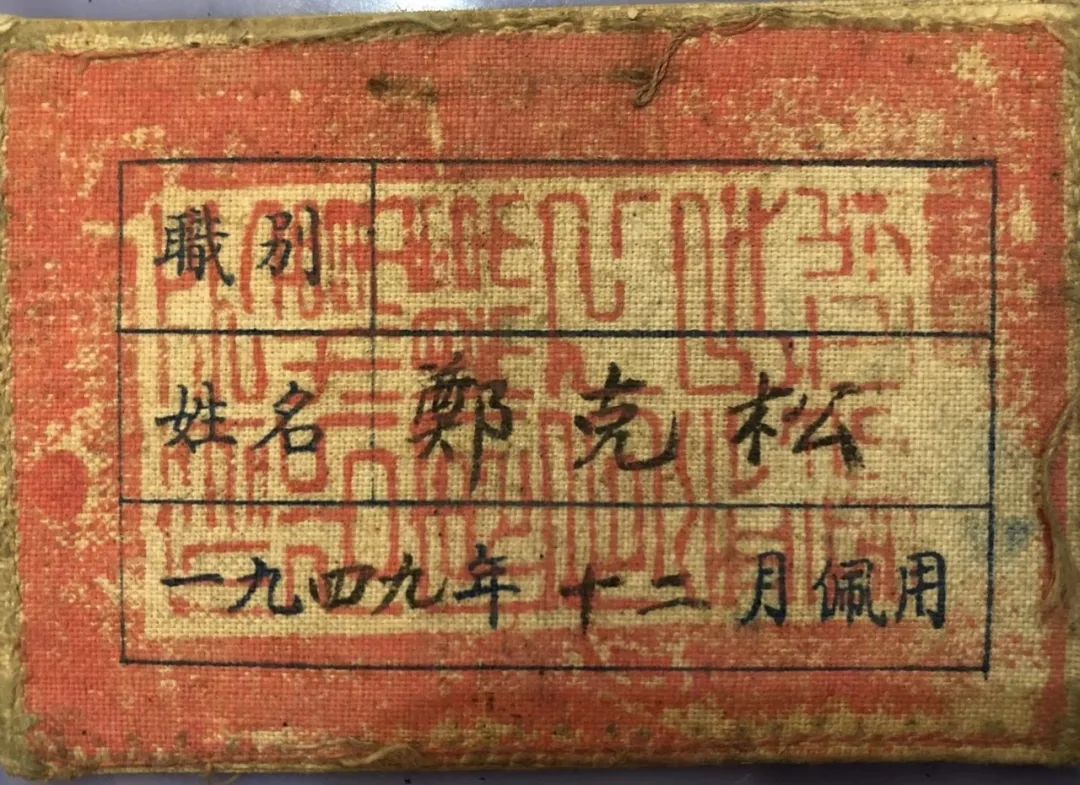 職別
姓名 鄭克松
一九四九年十二月佩用